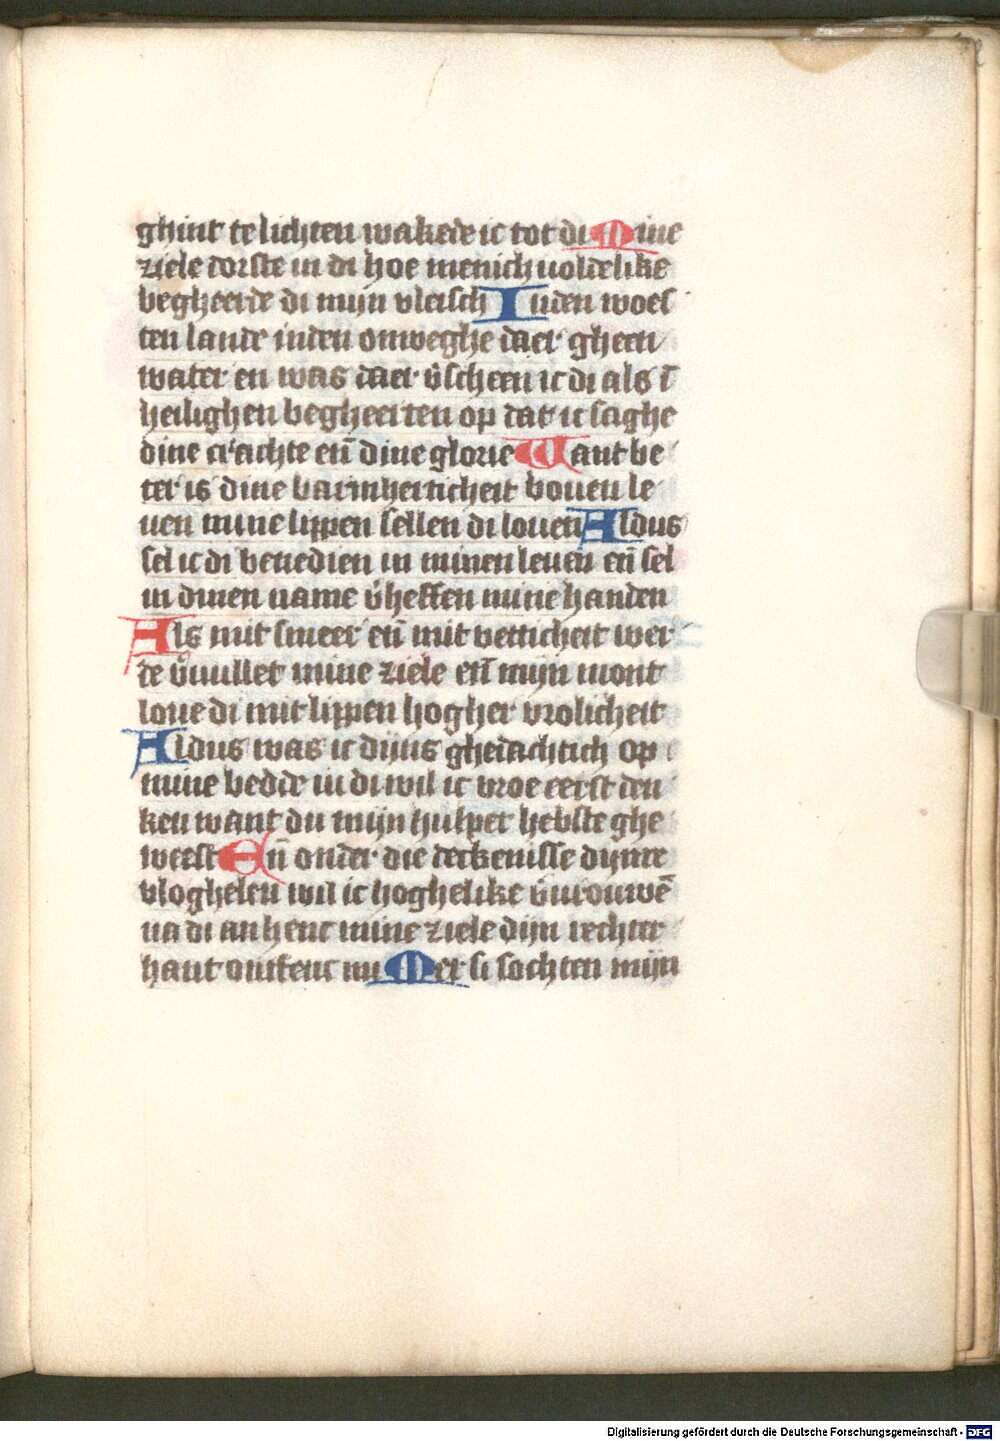 ghint te lichten wakede ic tot di Mine
ziele dorste in di hoe menich uoldelike
begheerde di mijn vleisch Inden woes
ten lande inden onweghe daer gheen
water en was daer v̄scheen ic di als ī
heilighen begheerten op dat ic saghe
dine crachte en̄ dine glorie Want be
ter is dine barmherticheit bouen le
uen mine lippen sellen di louen Aldus
sel ic di benedien in minen leuen en̄ sel
in dinen name v̄heffen mine handen
Als mit smeer en̄ mit vetticheit wer
de v̄uullet mine ziele en̄ mijn mont
loue di mit lippen hogher vrolicheit
Aldus was ic dijns ghedachtich op
mine bedde in di wil ic vroe eerst den
ken want du mijn hulper hebste ghe
weest En̄ onder die deckenisse dijnre
vloghelen wil ic hoghelike v̄urouwē
na di anhenc mine ziele dijn rechter
hant ontfenc mi Mer si sochten mijn
Digitalisierung gefördert durch die Deutsche Forschungsgemeinschaft - DFG